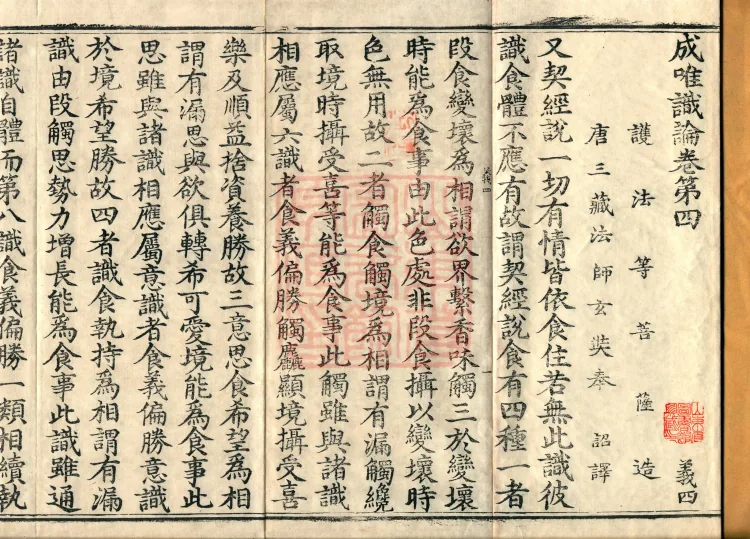 成唯識論卷第四 義四
護法等菩薩造
唐三藏法師玄奘奉 詔譯
又契經說一切有情皆依食住若無此識彼
識食體不應有故謂契經說食有四種一者
段食變壞為相謂欲界繫香味觸三於變壞
時能為食事由此色處非段食攝以變壞時
色無用故二者觸食觸境為相謂有漏觸纔
取境時攝受喜等能為食事此觸雖與諸識
相應屬六識者食義偏勝觸麤顯境攝受喜
樂及順益捨資養勝故三意思食希望為相
謂有漏思與欲俱轉希可愛境能為食事此
思雖與諸識相應屬意識者食義偏勝意識
於境希望勝故四者識食執持為相謂有漏
識由段觸思勢力增長能為食事此識雖通
諸識自體而第八識食義偏勝一類相續執